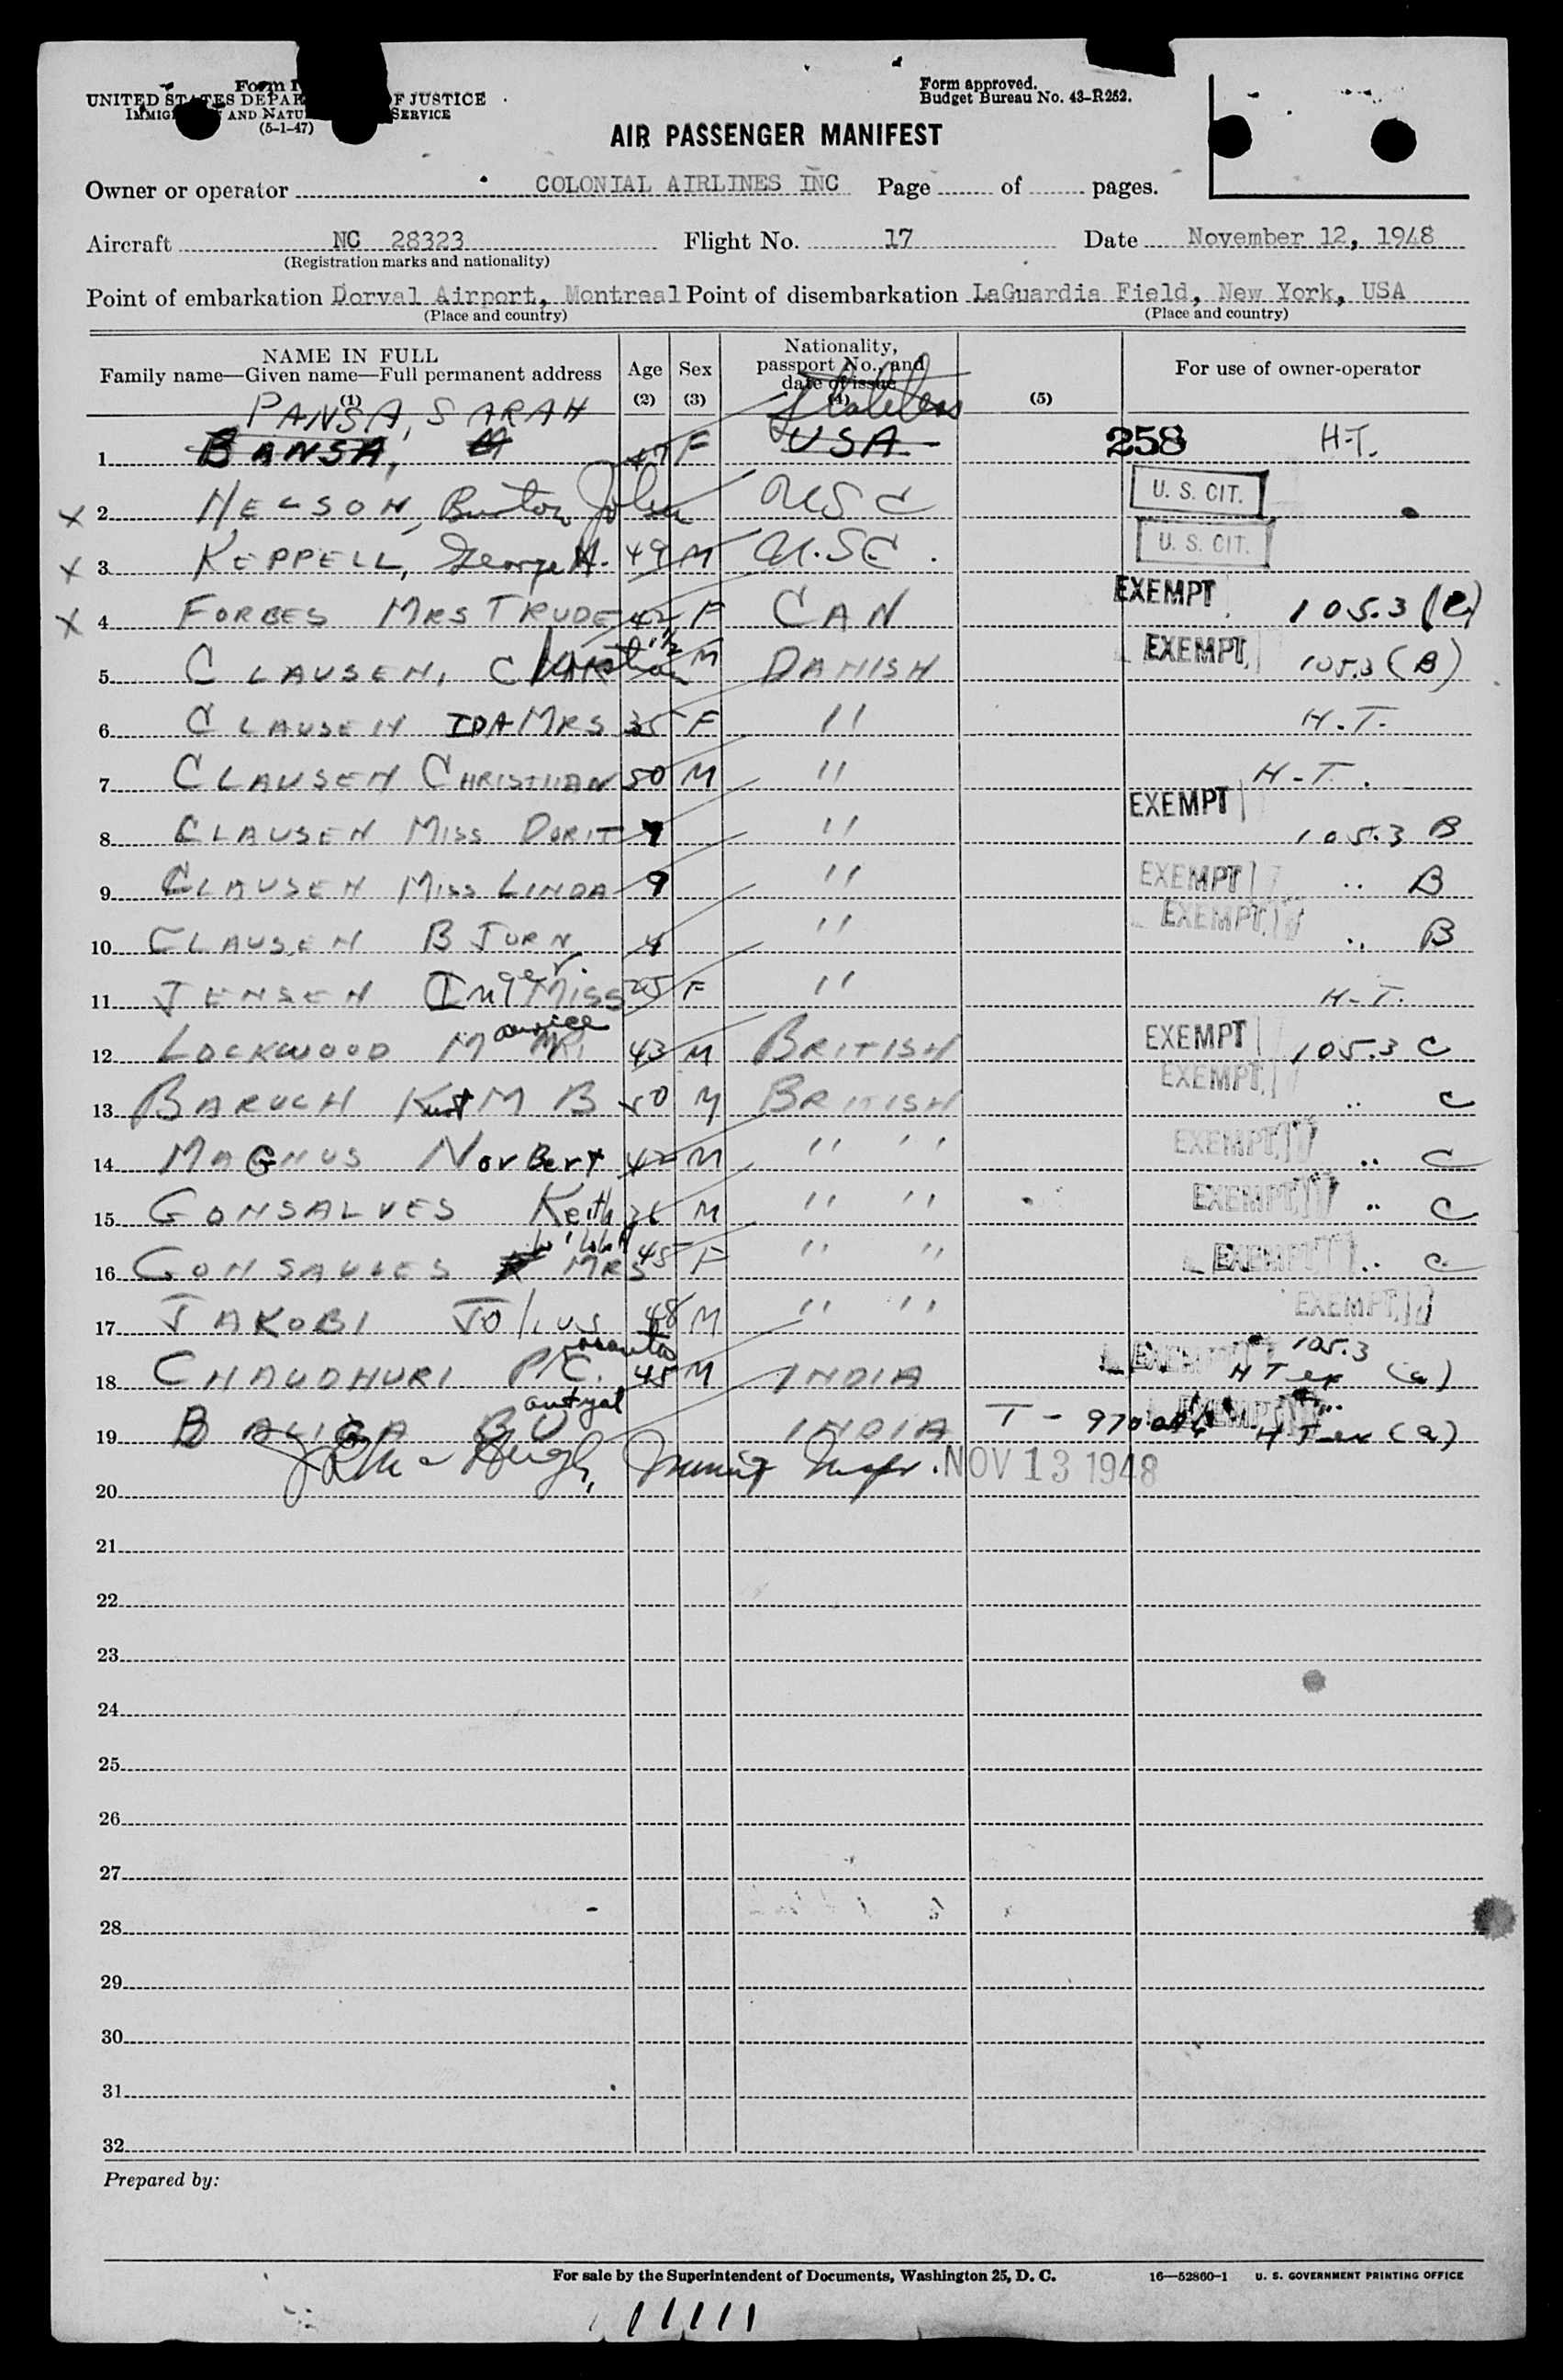 Form I
UNITED STATES DEPAR F JUSTICE
IMMIG AND NATU SERVICE
(5-1-47)
Form approved.
Budget Bureau No. 43-R252.
AIR PASSENGER MANIFEST
Owner or operator COLONIAL AIRLINES INC Page of pages.
Aircraft NC 28323 Flight No. 17 Date November 12, 1948
(Registration marks and nationality)
Point of embarkation Dorval Airport, Montreal Point of disembarkation LaGuardia Field, New York, USA
(Place and country) (Place and country)
NAME IN FULL
Family name—Given name—Full permanent address
(1)
Age
(2)
Sex
(3)
Nationality, passport No., and date of issue
(4)
(5)
For use of owner-operator
PANSA, SARAH Stateless
1 BANSA, 47 F USA 258 H-T.
X 2 NELSON, Burton John USC U. S. CIT.
X 3 KEPPELL, George H. 49 M U.S.C. U. S. CIT.
X 4 FORBES MRS TRUDE 42 F CAN EXEMPT 105.3 (e)
5 CLAUSEN, Christian 1/2 M DANISH EXEMPT 105.3 (B)
6 CLAUSEN IDA MRS 35 F " H.T.
7 CLAUSEN CHRISTIIAN 50 M " H-T.
8 CLAUSEN MISS DORIT 7 " EXEMPT 105.3 B
9 CLAUSEN MISS LINDA 9 " EXEMPT .. B
10 CLAUSEN BJORN 4 " EXEMPT .. B
11 JENSEN Inger MISS 25 F " H-T.
12 LOCKWOOD Maurice MR 43 M BRITISH EXEMPT 105.3 C
13 BARUCH Kurt M B 50 M BRITISH EXEMPT .. C
14 MAGNUS NorBert 42 M " " EXEMPT .. C
15 GONSALVES Keith M " " EXEMPT .. C
16 GONSALVES MRS 45 F " " EXEMPT .. C
17 JAKOBI Julius 48 M " " EXEMPT
18 CHAUDHURI P.C. 45 M INDIA EXEMPT 105.3 H T ex (a)
19 BALIGA B U INDIA T- EXEMPT H T ex (a)
20 Immig Inspr. NOV 13 1948
21
22
23
24
25
26
27
28
29
30
31
32
Prepared by:
For sale by the Superintendent of Documents, Washington 25, D. C. 16—52860-1 U. S. GOVERNMENT PRINTING OFFICE